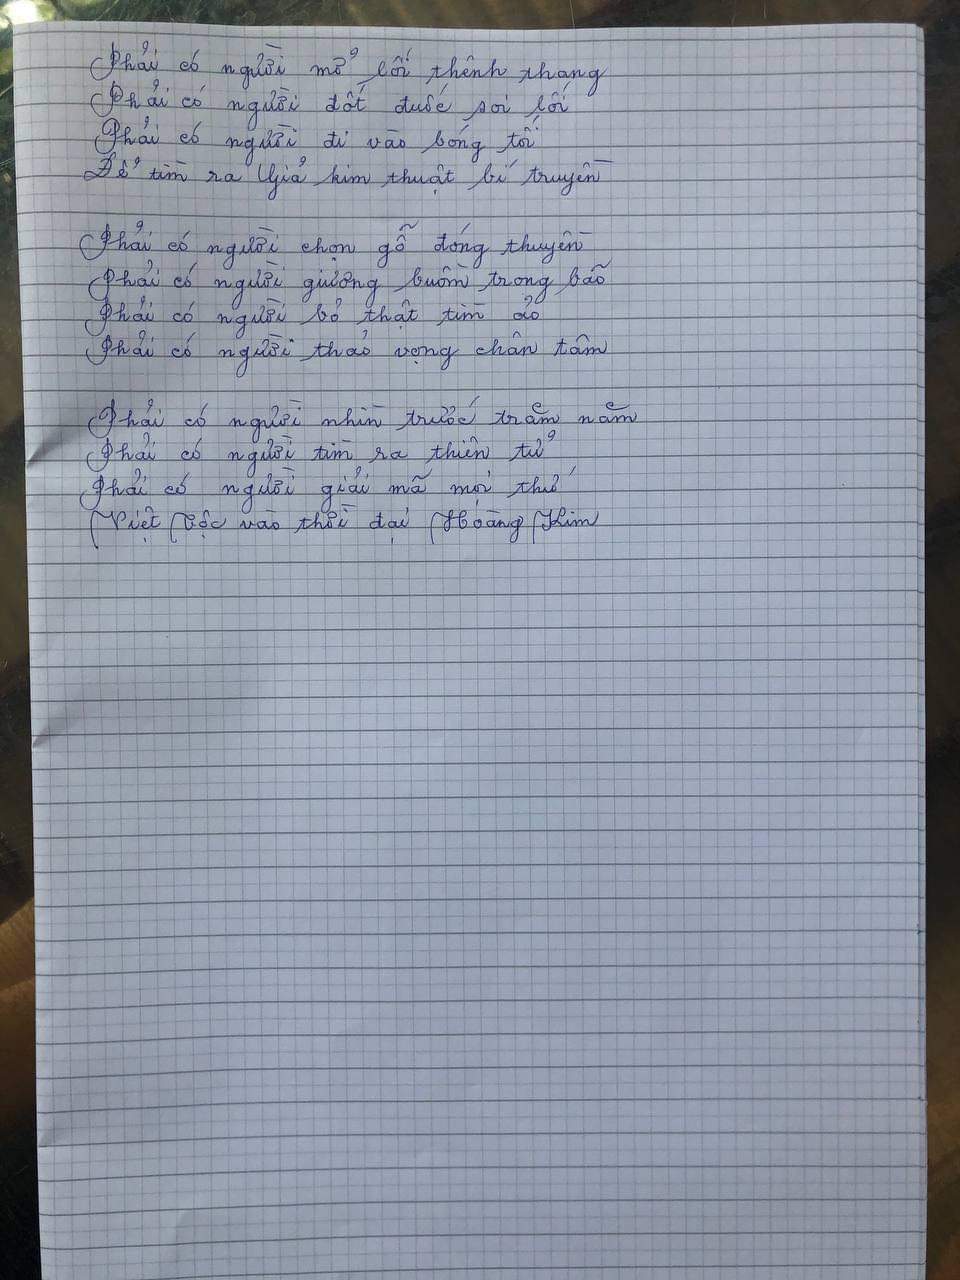 Phải có người mở lối thênh thang
Phải có người đốt đuốc soi lối
Phải có người đi vào bóng tối
Để tìm ra Giả kim thuật bí truyền
Phải có người chọn gỗ đóng thuyền
Phải có người giương buồm trong bão
Phải có người bỏ thật tìm ảo
Phải có người tháo vọng chân tâm
Phải có người nhìn trước trăm năm
Phải có người tìm ra thiên tử
Phải có người giải mã mọi thứ
Việt Tộc vào thời đại Hoàng Kim